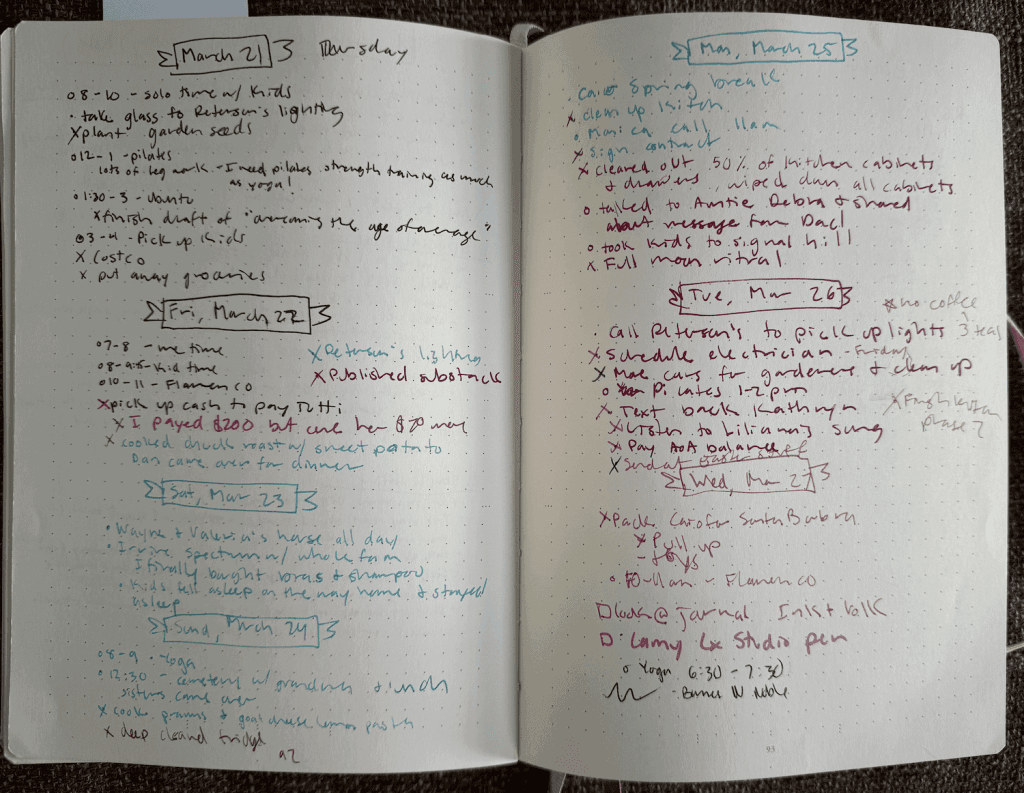 March 21 Thursday
8-10 - solo time w/ kids
• take glass to Peterson's lighting
x plant garden seeds
12-1 - pilates
lots of leg work - I need pilates strength training as much
as yoga!
1:30-3 - Ubuntu
x finish draft of " the age of average"
3-4 - Pick up kids
x Costco
x put away groceries
Fri, March 22
7-8 - me time
- kid time
10-11 - Flamenco
x Peterson's lighting
x Published substack
x pick up cash to pay Tutti
x I payed $200 but owe her $70 more
x cooked chuck roast w/ sweet potato
Dan came over for dinner
Sat, Mar 23
• Wayne + Valeria's house all day
• Irvine spectrum w/ whole fam
I finally bought bras & shampoo
• Kids fell asleep on the way home & stayed
asleep
Sund, March 24
8-9 - Yoga
12:30 - cemetery w/ grandma &
sisters came over
x cook prawns & goat cheese lemon pasta
x deep cleaned fridge
92
Mon, March 25
• Caro Spring break
x clean up kitch
Monica call 11am
x sign contract
x cleared out 50% of kitchen cabinets
& drawers, wiped down all cabinets
o talked to Auntie Debra & shared
about message from Dad
o took kids to signal hill
x Full moon ritual
Tue, Mar 26
no coffee
3 teas
• Call Peterson's to pick up lights
x Schedule electrician - Friday
x Move cars for gardeners & clean up
Pilates 1-2pm
x Text back Kathryn
x Listen to Lilianna's song
x Pay AoA balance
x Send
x Finish kitchen
phase 2
Wed, Mar 27
x Pack Caro for Santa Barbara
x Pull up
- toys
o 10-11am - Flamenco
□ look @ journal Ink + Volk
□ • Lamy Lx Studio pen
o Yoga 6:30 - 7:30
- Barnes N Noble
93